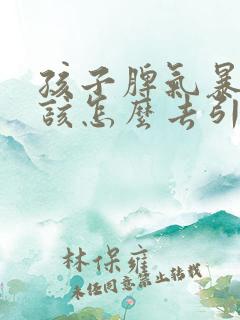 孩子脾氣暴
該怎麼去引
林保雍
未经同意禁止转载